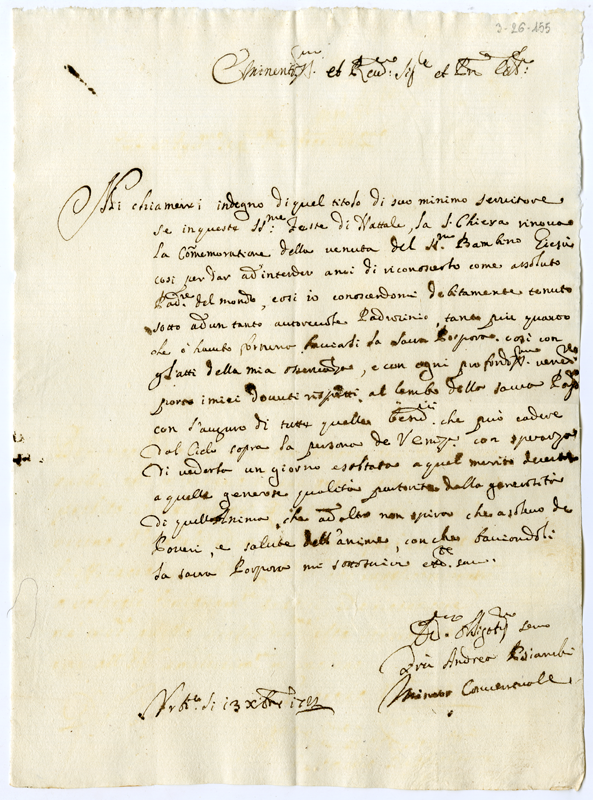 3-26-155
Eminentiss.mo et Rev.mo Sig.re et P.ron Col.mo
Mi chiamerei indegno di quel titolo di suo minimo servitore
se in queste SS.me Feste di Nattale, la S. Chiesa rinova
la Comemoratione della venuta del SS.mo Bambino Giesù
così per dar ad'intender anoi di riconoscerlo come assoluto
Pad.ne del mondo, così io conoscendomi debitamente tenuto
sotto ad'un tanto autorevole Padrocinio, tanto più quanto
che ò havuto fortuna baciarli la sacra Porpora. così con
gl'atti della mia osservanza, e con ogni profondiss.ma
porto i miei dovuti rispetti al lembo della sacra
con l'auguro di tutte quelle Bened.ni che può cadere
dal Cielo sopra la persona de V. Emza. con speranza
di vederla un giorno esaltata a quel merito
a quelle generose qualità partorite dalla generosità
di quell'Anima, che ad altro non spira che a solievo de
Poveri, e salute dell'anime, con che baciandoli
la sacra Porpora mi sottoscrivo
Obligatis.mo servo
Frà Andrea
Minor Conventuale
li 13 Xbre